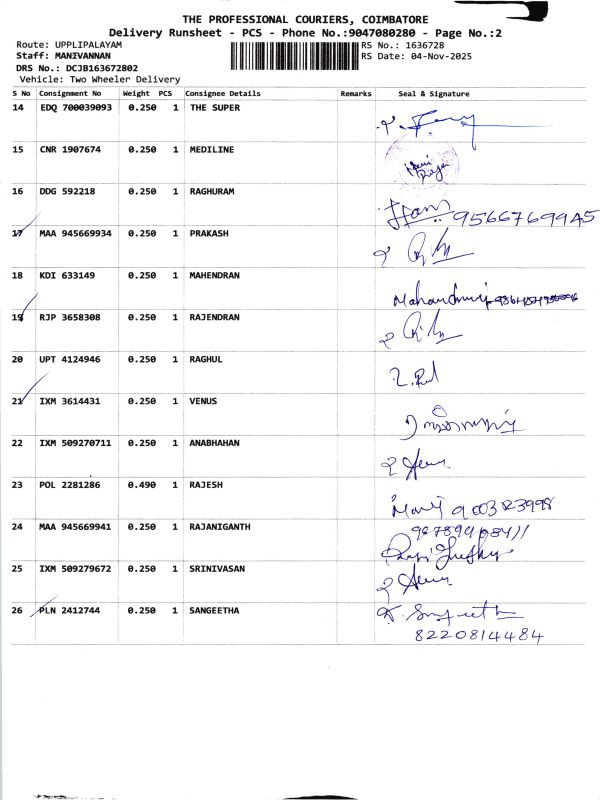 THE PROFESSIONAL COURIERS, COIMBATORE
Delivery Runsheet - PCS - Phone No.:9047080280 - Page No.:2
Route: UPPLIPALAYAM RS No.: 1636728
Staff: MANIVANNAN RS Date: 04-Nov-2025
DRS No.: DCJB163672802
Vehicle: Two Wheeler Delivery
S No Consignment No Weight PCS Consignee Details Remarks Seal & Signature
14 EDQ 700039093 0.250 1 THE SUPER
15 CNR 1907674 0.250 1 MEDILINE
16 DDG 592218 0.250 1 RAGHURAM
9566769945
17 MAA 945669934 0.250 1 PRAKASH
18 KDI 633149 0.250 1 MAHENDRAN
19 RJP 3658308 0.250 1 RAJENDRAN
20 UPT 4124946 0.250 1 RAGHUL
21 IXM 3614431 0.250 1 VENUS
22 IXM 509270711 0.250 1 ANABHAHAN
23 POL 2281286 0.490 1 RAJESH
24 MAA 945669941 0.250 1 RAJANIGANTH
25 IXM 509279672 0.250 1 SRINIVASAN
26 PLN 2412744 0.250 1 SANGEETHA
8220814484